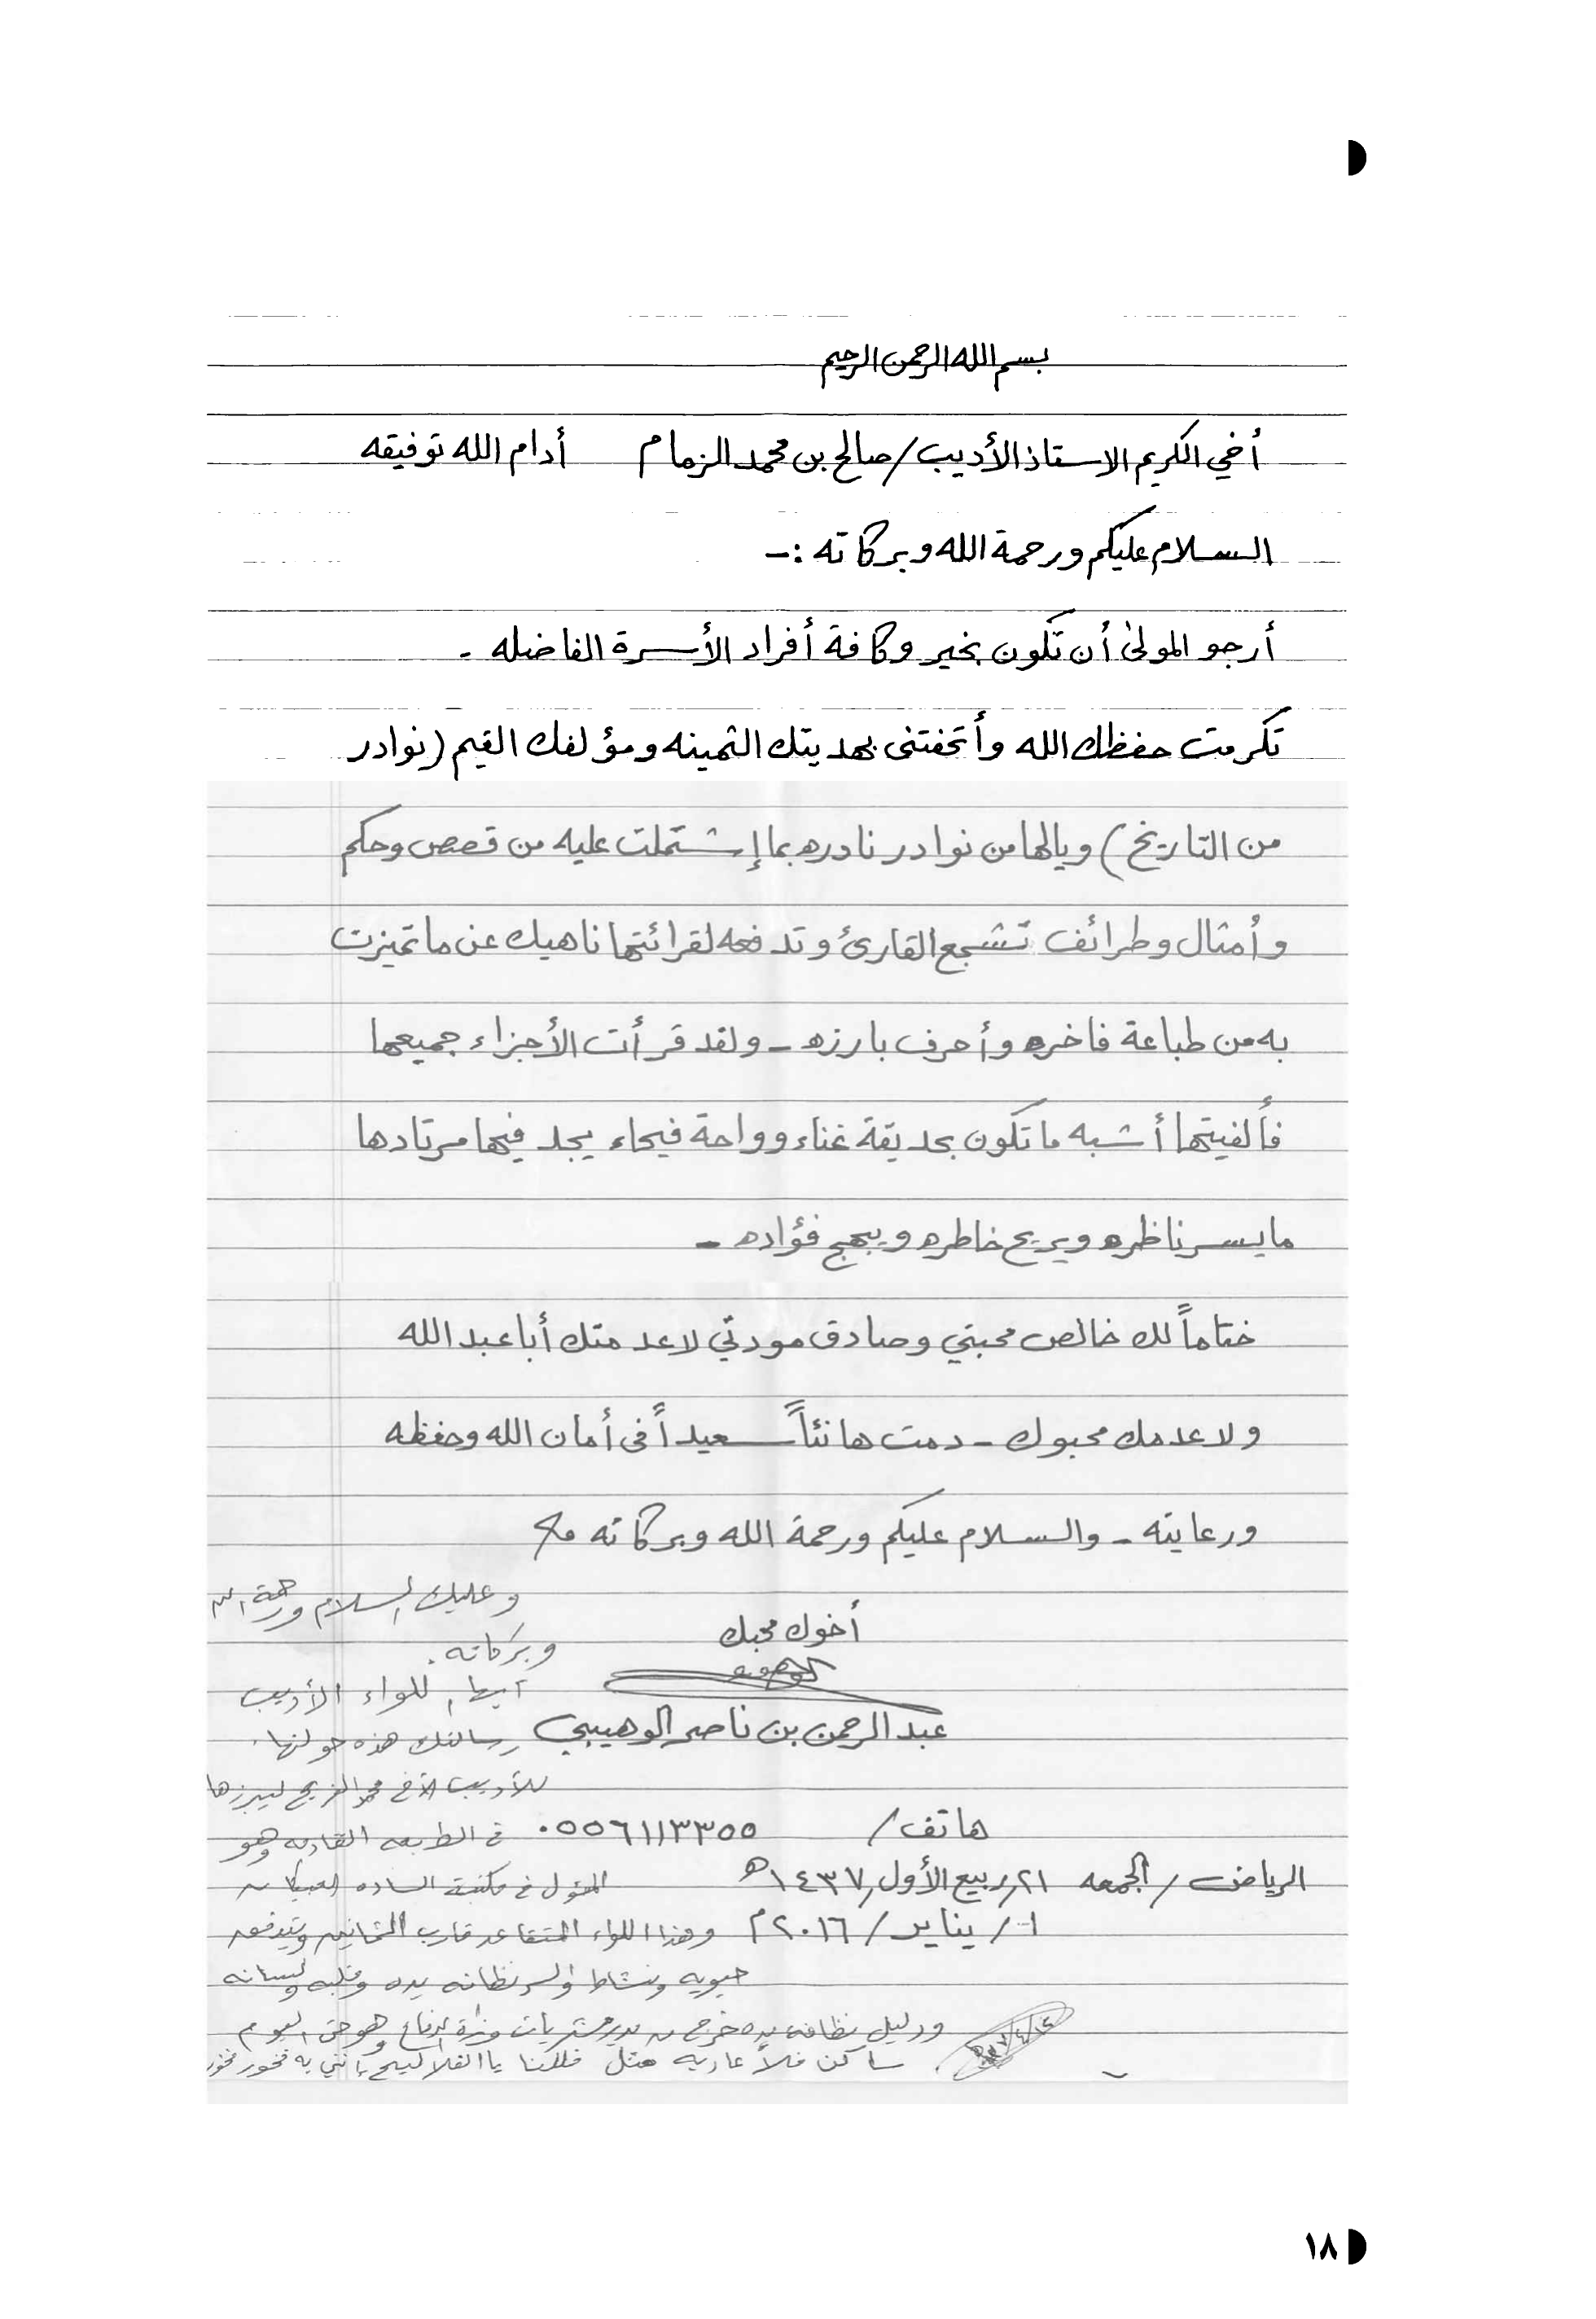 بسم الله الرحمن الرحيم
أخي الكريم الاستاذ الأديب / صالح بن محمد الزمام أدام الله توفيقه
السلام عليكم ورحمة الله وبركاته :-
أرجو المولى أن تكون بخير وكافة أفراد الأسرة الفاضله -
تكرمت حفظك الله وأتحفتني بهديتك الثمينه ومؤلفك القيم (نوادر
من التاريخ) ويالها من نوادر نادره بما إشتملت عليه من قصص وحكم
وأمثال وطرائف تشجع القارئ وتدفعه لقرائتها ناهيك عن ما تميزت
به من طباعة فاخره وأحرف بارزه - ولقد قرأت الأجزاء جميعها
فألفيتها أشبه ما تكون بحديقة غناء وواحة فيحاء يجد فيها مرتادها
ما يسر ناظره ويريح خاطره ويبهج فؤاده -
ختاماً لك خالص محبتي وصادق مودتي لا عدمتك أبا عبد الله
ولا عدمك محبوك - دمت هانئاً سعيداً في أمان الله وحفظه
ورعايته - والسلام عليكم ورحمة الله وبركاته
أخوك محبك
عبد الرحمن بن ناصر الوهيبي
هاتف / ٠٥٥٦١١٣٣٥٥
الرياض / الجمعه ٢١/ربيع الأول/١٤٣٧هـ
١/ يناير / ٢٠١٦م
وعليك السلام ورحمة الله
وبركاته.
أيها اللواء الأديب
رسالتك هذه حولتها
للأديب الأخ محمد الفريح ليبرزها
في الطبعه القادمه وهو
المسؤول في مكتبة الساده العبيكان
وهذا اللواء المتقاعد قارب الثمانين ويتدفق
حيويه ونشاط والسر نظافة يده وقلبه ولسانه
ودليل نظافة يده خرج من مدير مشتريات وزارة الدفاع وهو حتى اليوم
ساكن فلا عاديه مثل فللنا
١٨